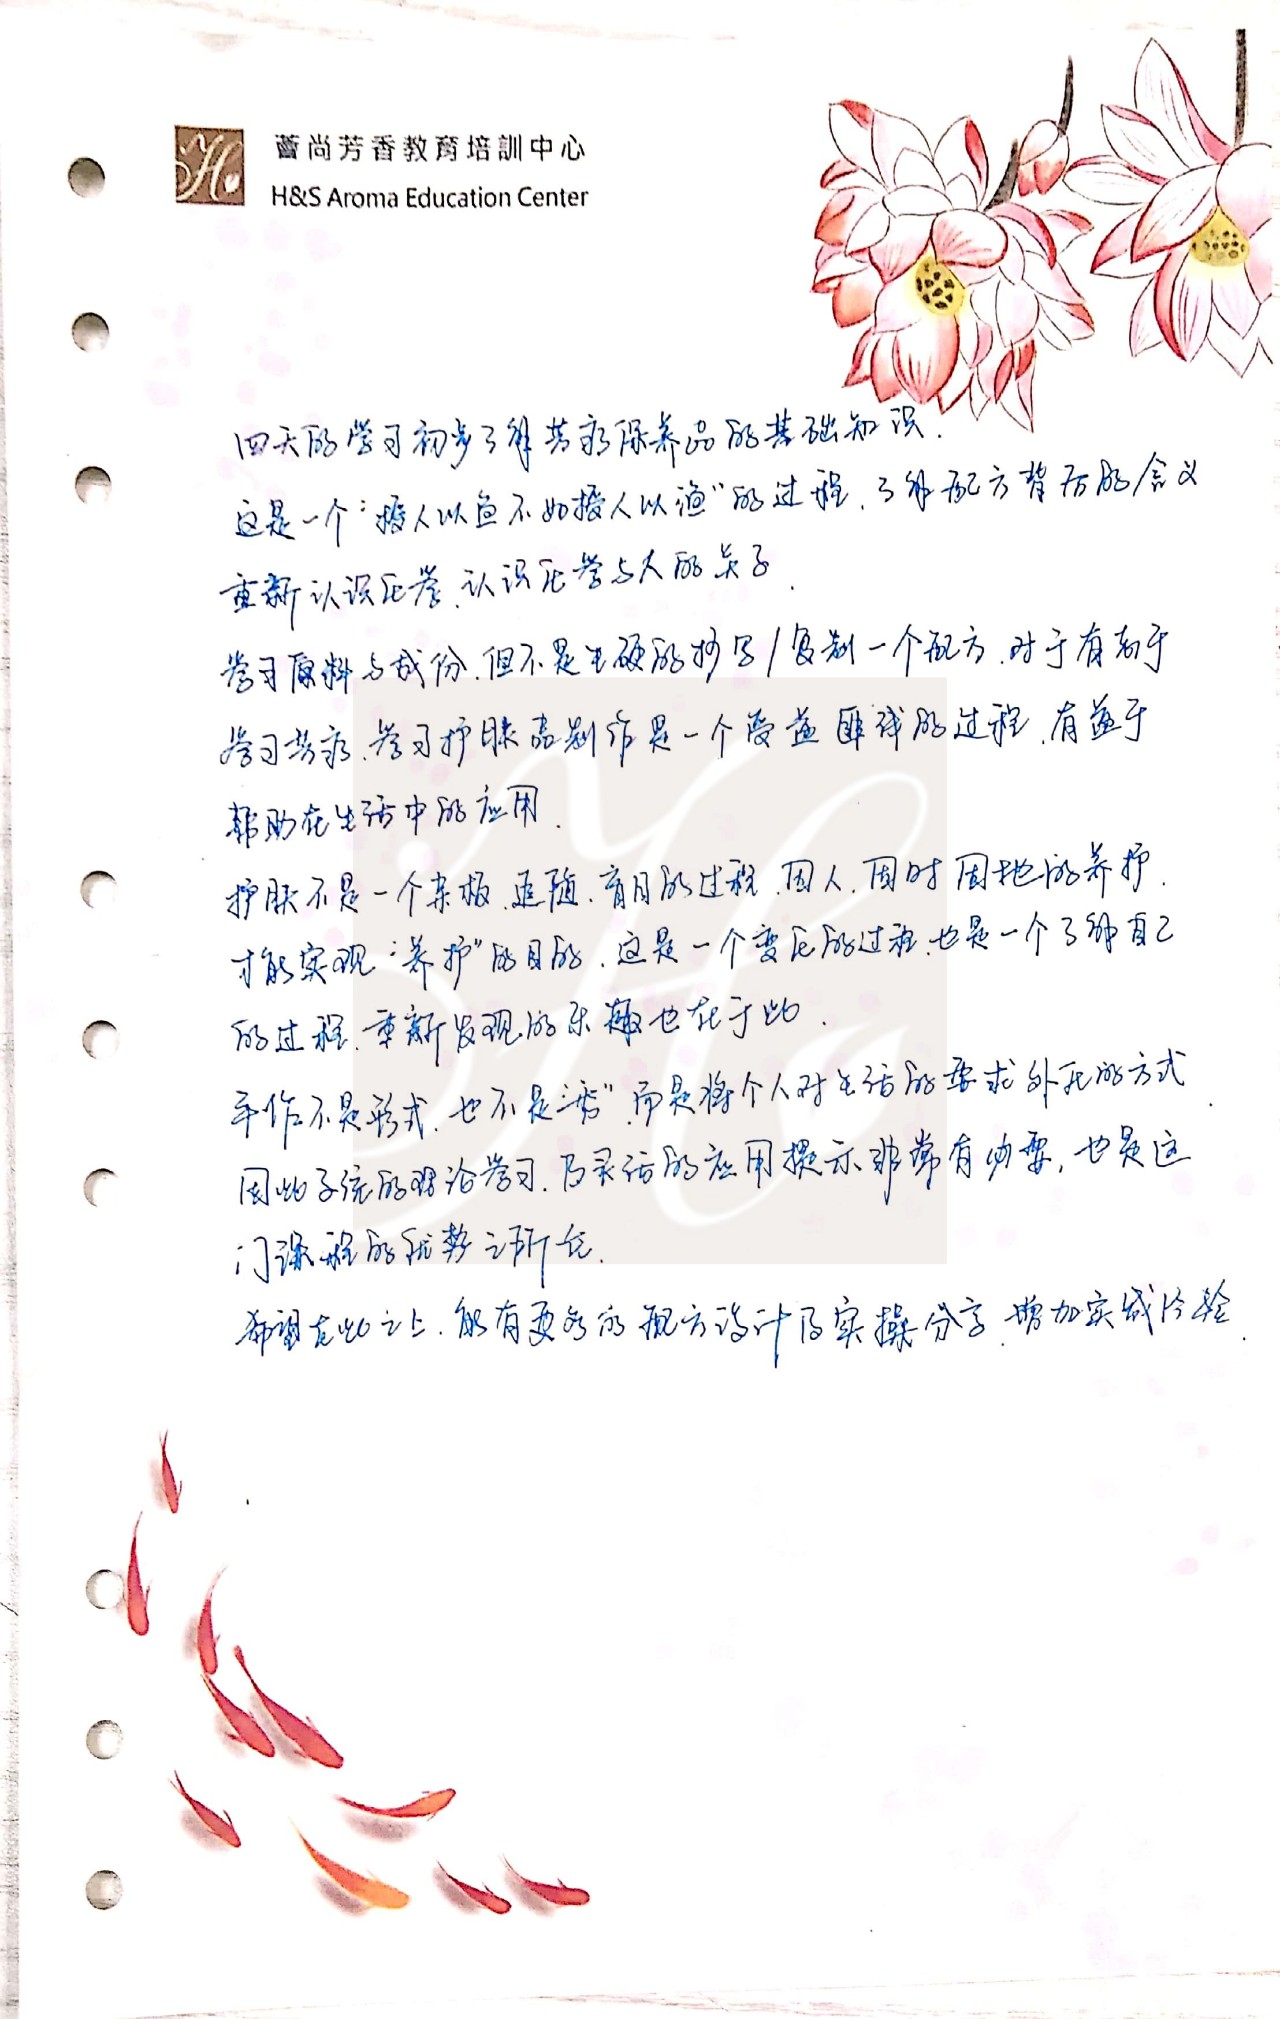 薈尚芳香教育培訓中心
H&S Aroma Education Center
四天的学习初步了解芳疗保养品的基础知识.
这是一个“授人以鱼不如授人以渔”的过程.了解配方背后的含义
重新认识化学、认识化学与人的关系.
学习原料与成份.但不是生硬的抄写/复制一个配方.对于有志于
学习芳疗、学习护肤品制作是一个受益匪浅的过程.有益于
帮助在生活中的应用.
护肤不是一个呆板、追随、盲目的过程.因人.因时因地的养护.
才能实现“养护”的目的.这是一个变化的过程.也是一个了解自己
的过程.重新发现的乐趣也在于此.
手作不是形式.也不是“秀”.而是将个人对生活的要求外化的方式.
因此系统的理论学习.及灵活的应用提示非常有必要.也是这
门课程的优势之所在.
希望在此之上.能有更多的配方设计及实操分享.增加实战经验.